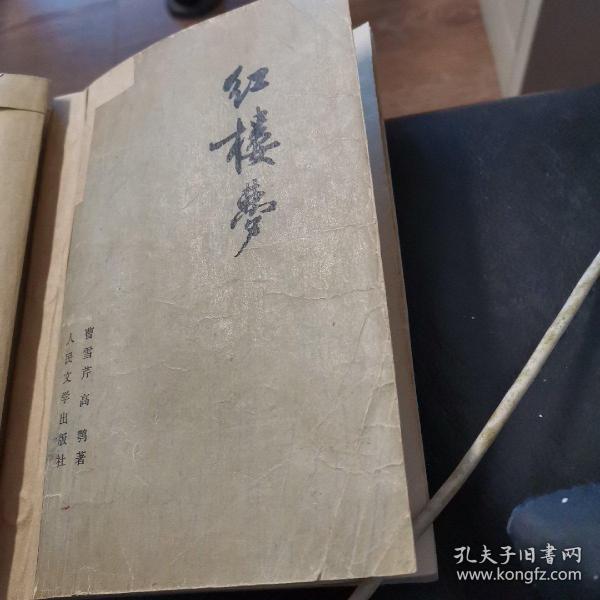 红楼梦
曹雪芹 高鹗 著
人民文学出版社
孔夫子旧书网
www.kongfz.com